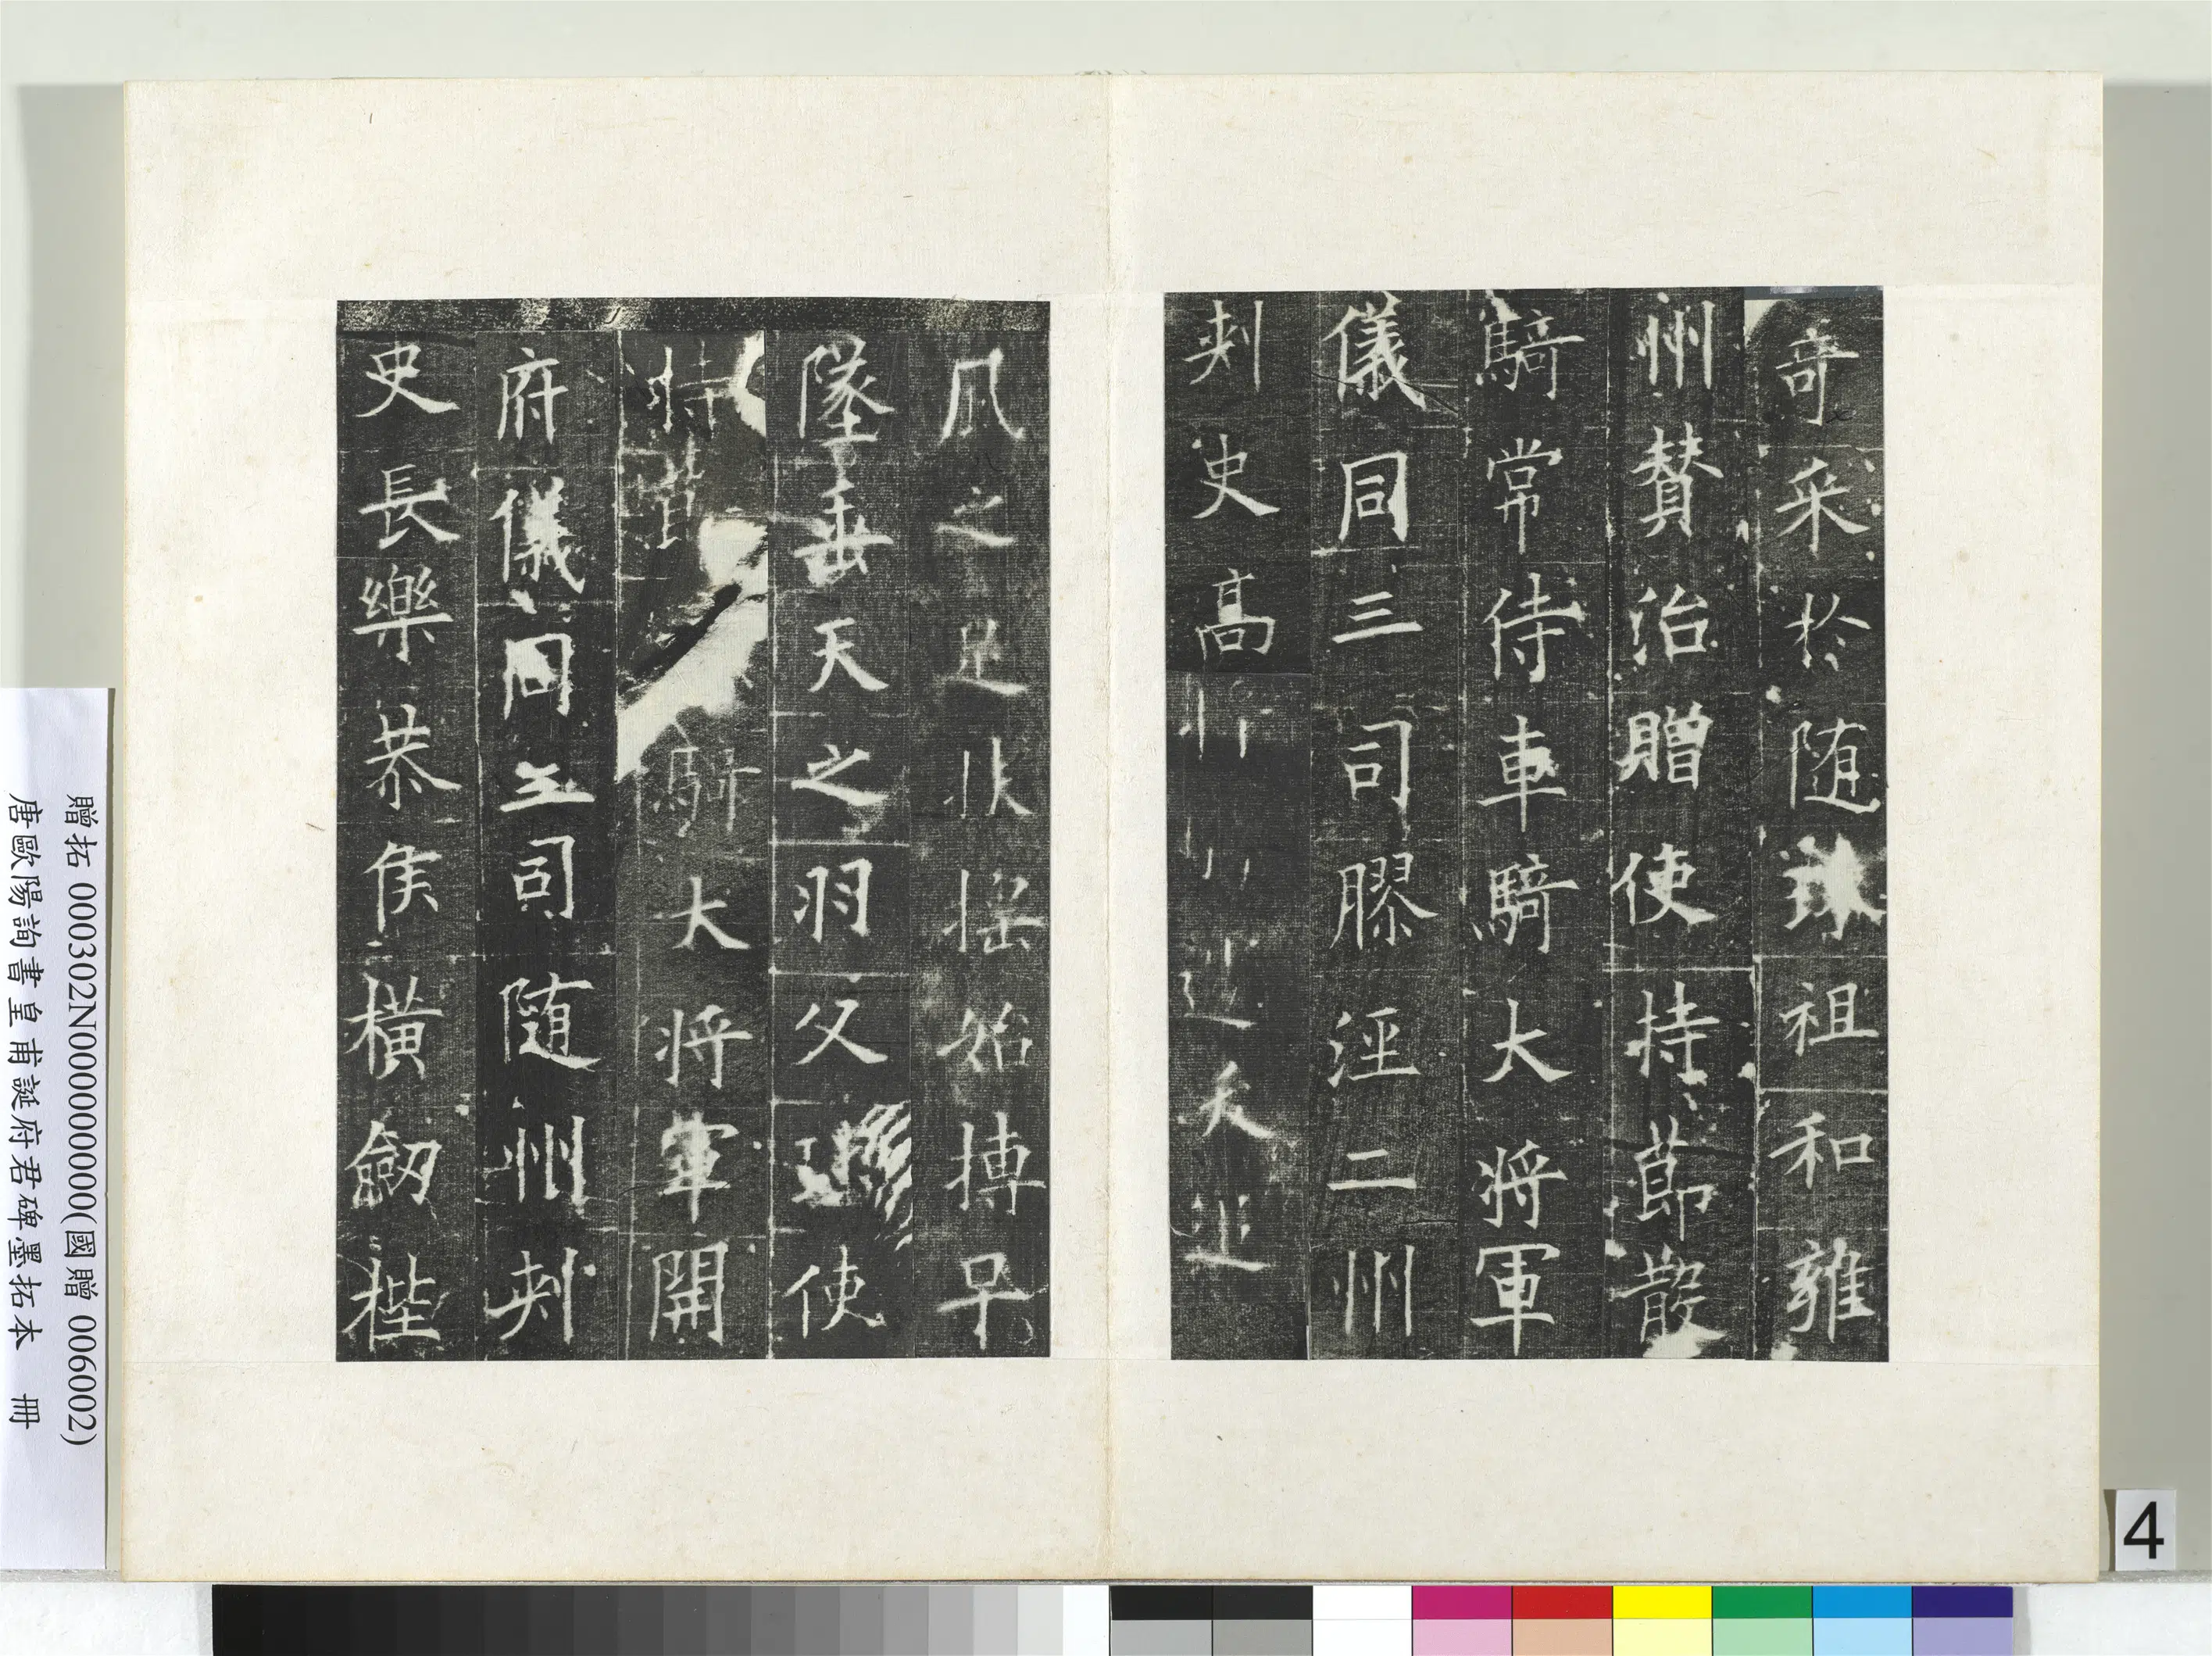 奇采於隨珠祖和雍
州贊治贈使持節散
騎常侍車騎大將軍
儀同三司膠涇二州
刺史高
風之足扶搖始摶早
墜垂天之羽父璠使
持大將軍開
府儀同三司隨州刺
史長樂恭侯橫劒梐
贈拓 000302N000000000(國贈 006002)
唐歐陽詢書皇甫誕府君碑墨拓本 冊
4